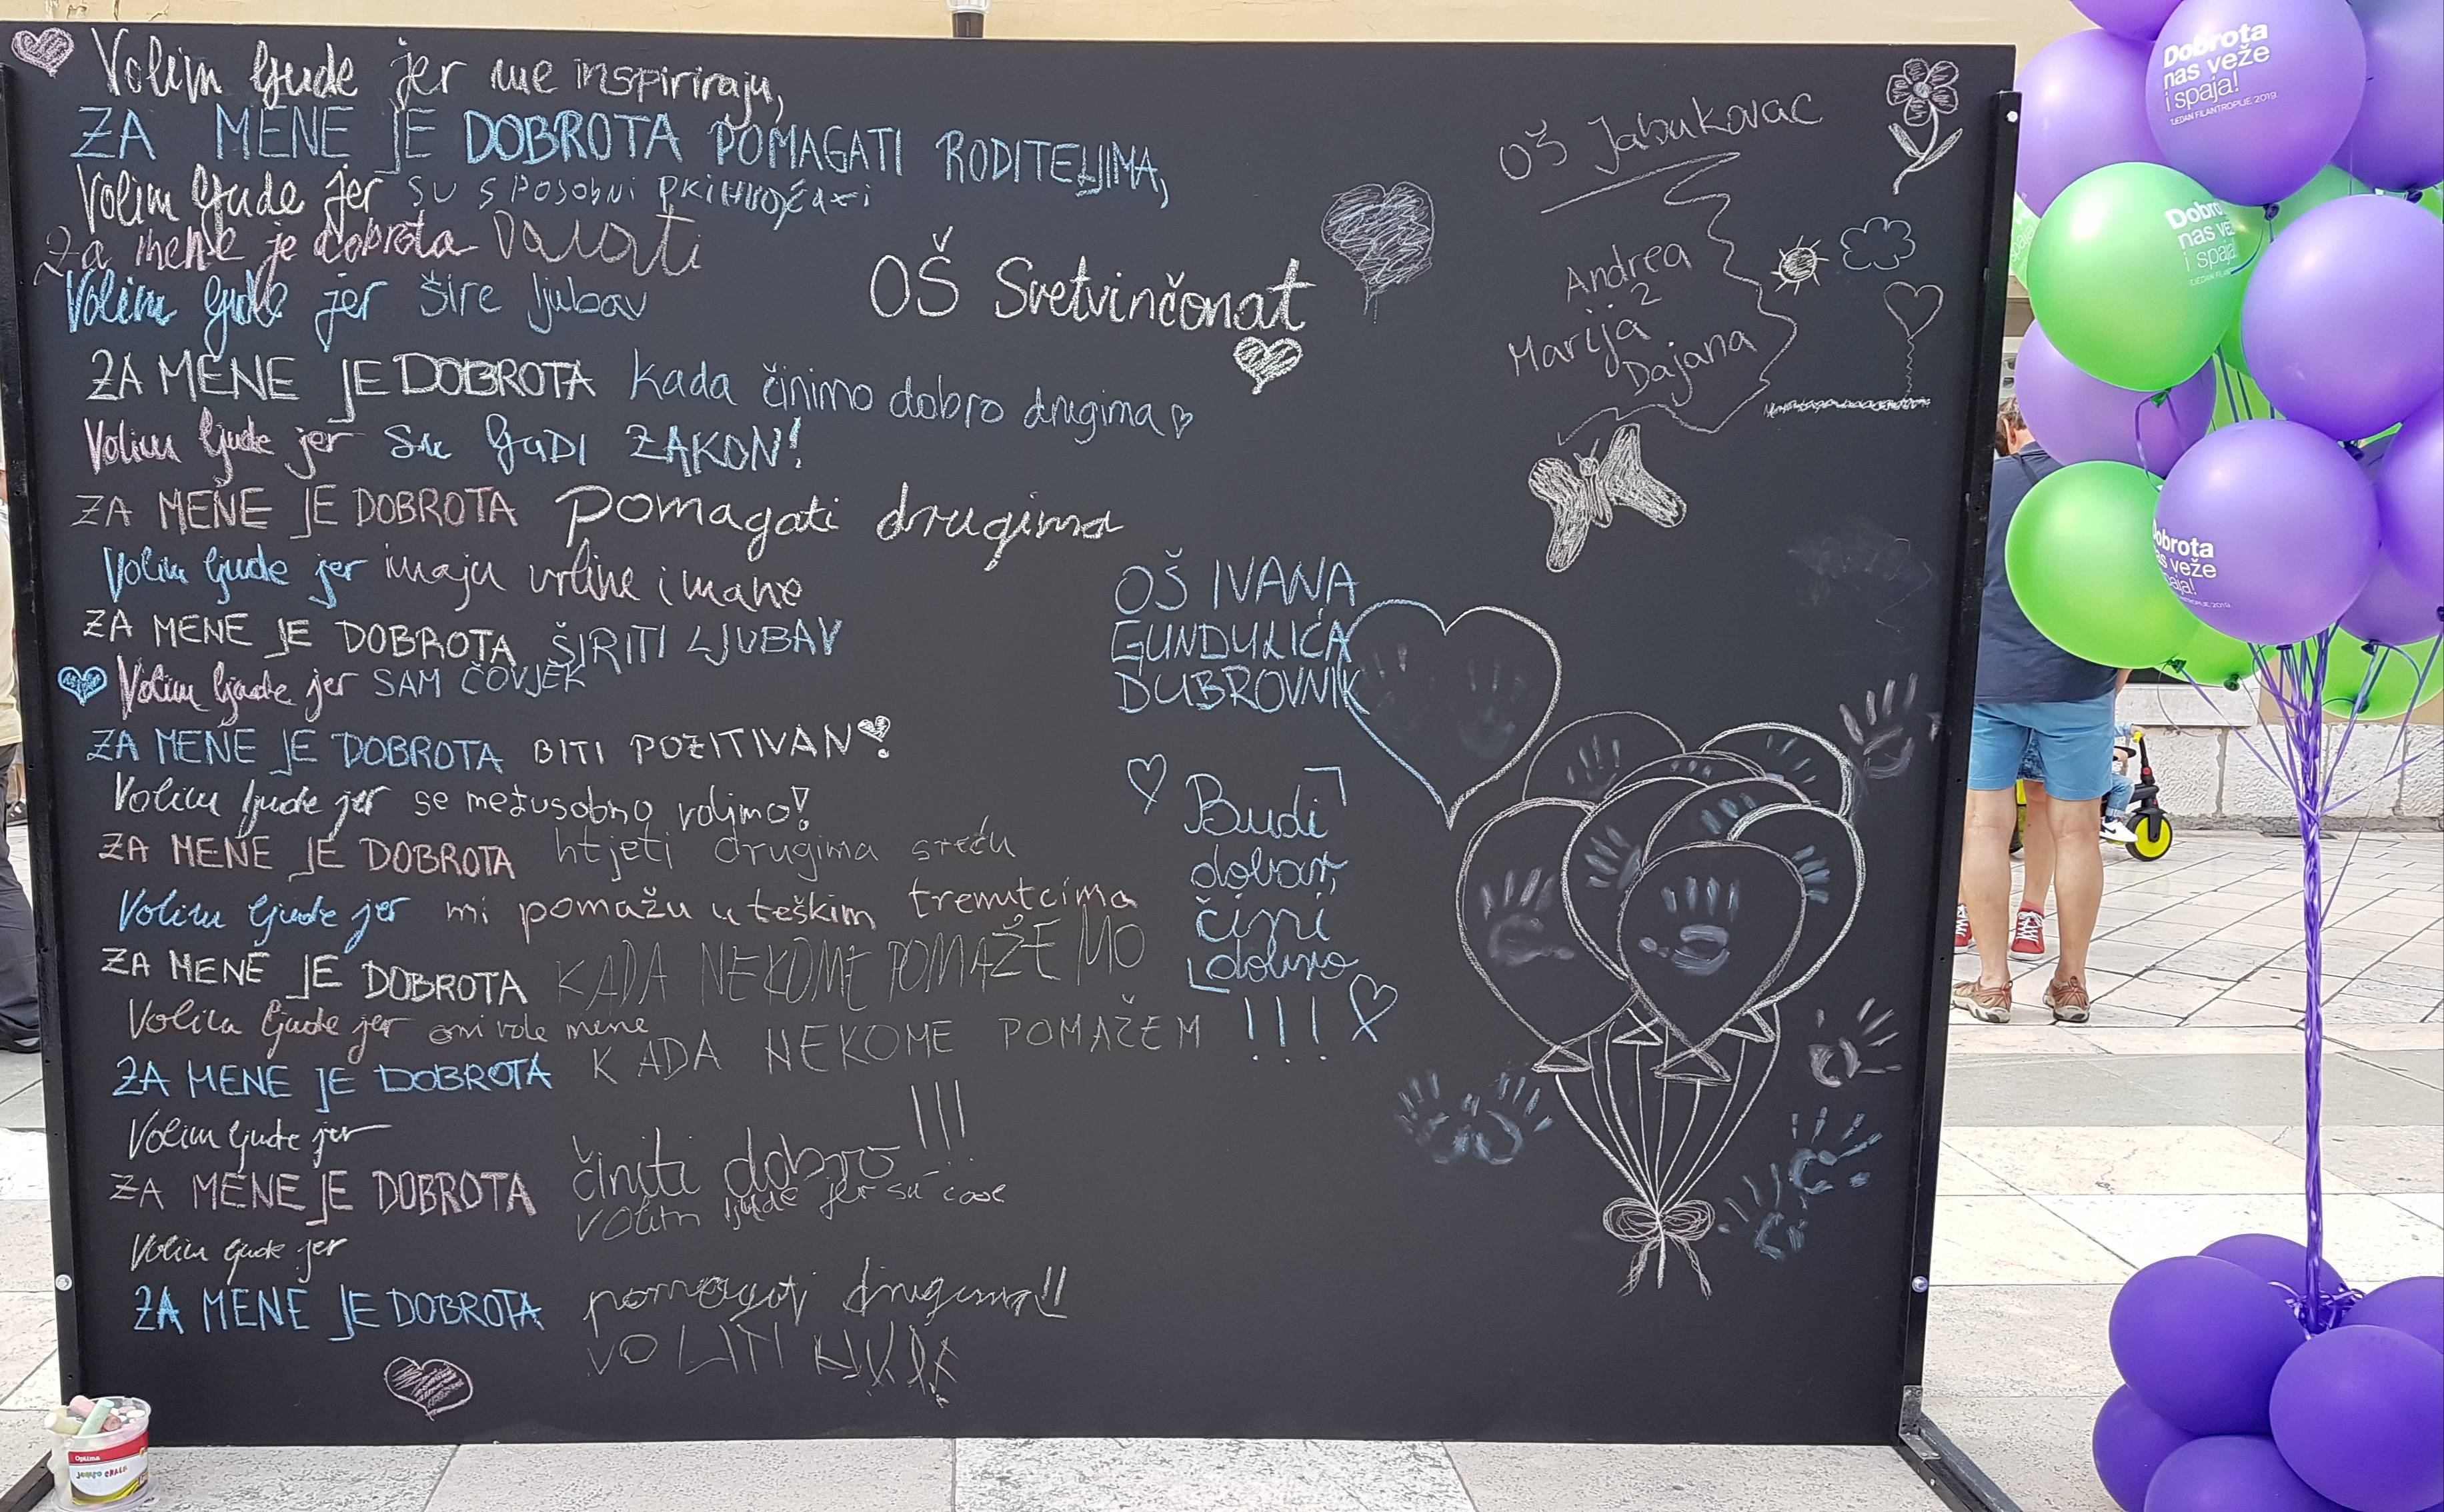 Volim ljude jer me inspiriraju,
ZA MENE JE DOBROTA POMAGATI RODITELJIMA,
Volim ljude jer su sposobni
Za mene je dobrota
Volim ljude jer šire ljubav
ZA MENE JE DOBROTA kada činimo dobro drugima
Volim ljude jer su ljuDI ZAKON!
ZA MENE JE DOBROTA pomagati drugima
Volim ljude jer imaju vrline i mane
ZA MENE JE DOBROTA ŠIRITI LJUBAV
Volim ljude jer SAM ČOVJEK
ZA MENE JE DOBROTA BITI POZITIVAN
Volim ljude jer se međusobno voljmo!
ZA MENE JE DOBROTA htjeti drugima sreću
Volim ljude jer mi pomažu u teškim trenutcima
ZA MENE JE DOBROTA KADA NEKOME POMAŽEMO
Volim ljude jer oni vole mene
ZA MENE JE DOBROTA KADA NEKOME POMAŽEM
Volim ljude jer
ZA MENE JE DOBROTA činiti dobro!!!
volim ljude jer su cool
Volim ljude jer
ZA MENE JE DOBROTA pomagati drugima!!
VOLITI
OŠ Svetvinčenat
OŠ Jabukovac
Andrea
Marija 2
Dajana
OŠ IVANA
GUNDULIĆA
DUBROVNIK
Budi
dobar,
čini
dobro
!!!
Dobrota
nas veže
i spaja!
TJEDAN FILANTROPIJE 2019
Dobro
nas ve
i spaja
TJEDAN FILAN
Dobrota
as veže
paja!
ANTROPIJE 2019
Optima
JUMBO CHALK